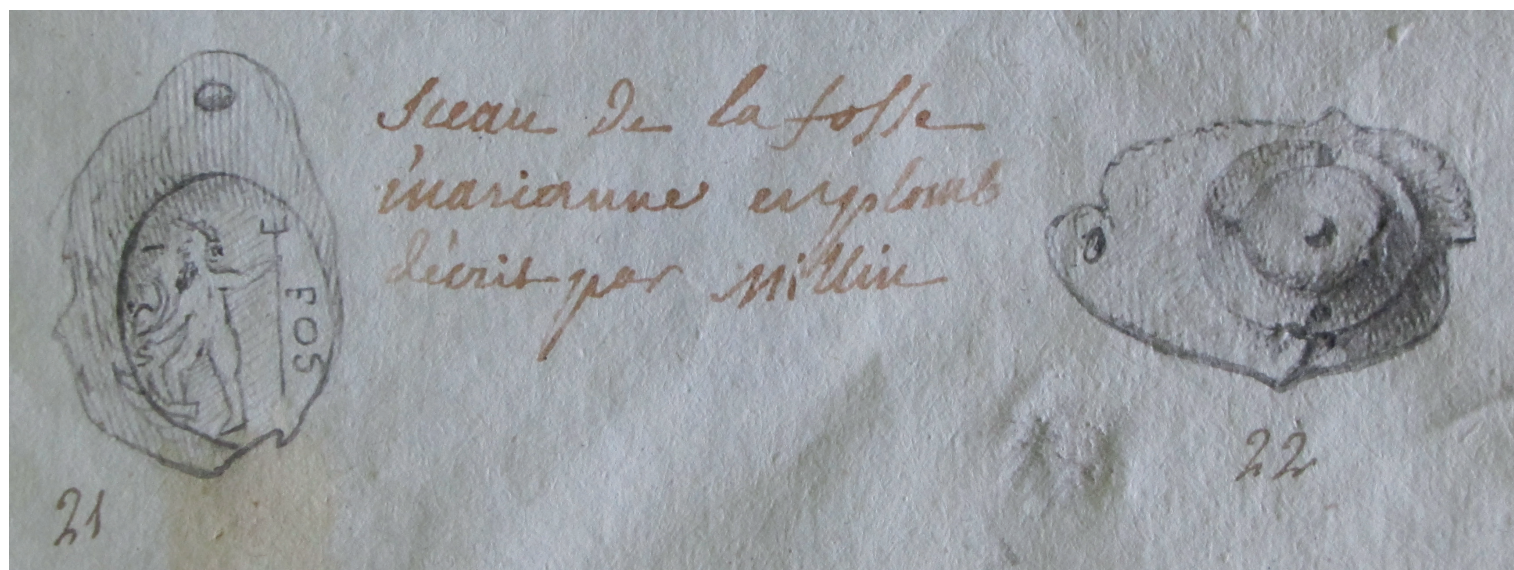 Sceau de la fosse
marianne en plomb
décrit par Millin
FOS
21
22